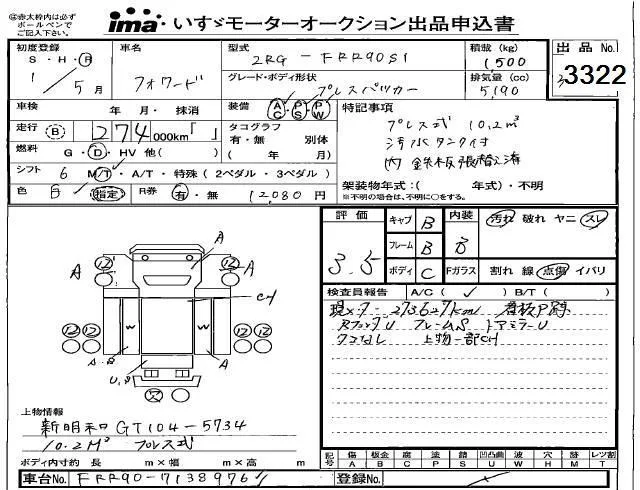 ◎赤太枠内は必ず
ボールペンで
ご記入下さい。
ima・いすゞモーターオークション出品申込書
初度登録
S・H・R
1
5月
車名
フォワード
型式
2RG-FRR90S1
積載(kg)
1,500
出品No.
3322
グレード・ボディ形状
プレスパッカー
排気量(cc)
5,190
車検 年・月・抹消
装備 AC・PS・PW
特記事項
プレス式 10.2m³
汚水タンク付
内 鉄板張替済
走行 B 274000km「」
タコグラフ
有・無 別体
( 年 月)
燃料 G・D・HV 他( )
シフト 6 M/T・A/T・特殊(2ペダル・3ペダル)
色 白 指定 R券 有・無 12,080円
架装物年式:( 年式)・不明
※不明の場合は、不明に〇をする。
評価
3.5
キャブ B
フレーム B
ボディ C
内装 B
Fガラス
汚れ 破れ ヤニ スレ
割れ 線 点傷 イバリ
検査員報告 A/C(✓) B/T( )
現メーター 273,627km 看板戸跡
RフックU フレームS ドアミラーU
ワコなし 上物一部CH
A
A
A
A
CH
W
W
A・B
U,S
12
12
12
12
12
12
上物情報
新明和 GT104-5734
10.2M³ プレス式
ボディ内寸約 長 m×幅 m×高 m
記号
傷 A
板金 B
腐 C
塗 P
錆 S
凹凸曲 U
波 W
穴 H
跡 M
レツ割 T
車台No. FRR90-7138976
登録No.